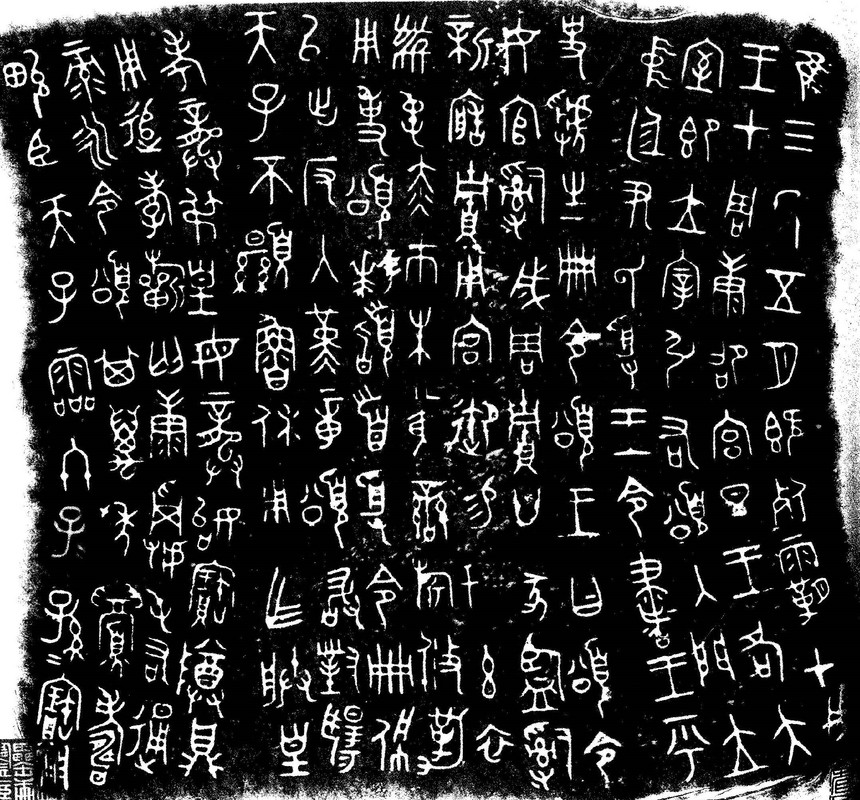 隹三年五月既死霸甲戌
王才周康卲宮旦王各大
室即立宰引右頌入門立
中廷尹氏受王令書王乎
史虢生冊令頌王曰頌令
女官𤔲成周貯廿家監𤔲
新造貯用宮御易女玄衣
黹屯赤市朱黃䜌旂攸勒
用事頌拜𩒨首受令冊佩
㠯出反入堇章頌敢對揚
天子不顯魯休用乍朕皇
考龏弔皇母龏始寶尊鼎
用追孝祈匄康𠭯屯右通
彔永令頌其萬年眉壽
畯臣天子霝冬子孫=寶用